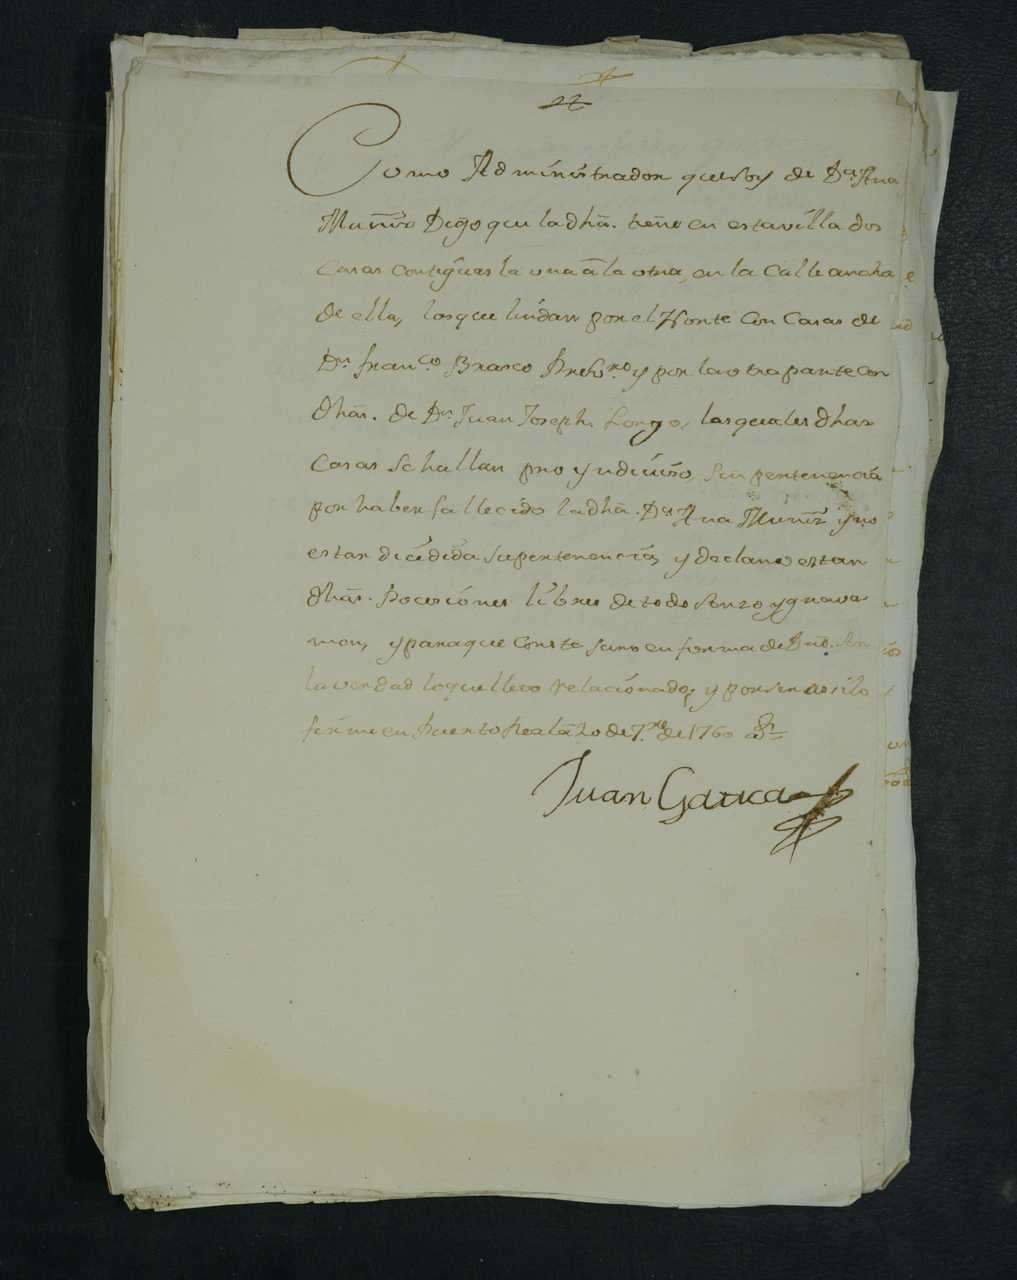 Como Administrador que soy de Dª. Ana
Muñiz Digo que la dhâ. tiene en esta villa dos
Casas contiguas la una â la otra, en la Calle ancha
de ella, las que lindan por el Norte con Casas de
Dn. franco. Brasco Presbro. y por la otra parte con
dhâs. de Dn. Juan Joseph Longo, las quales dhas
Casas se hallan pro yndiviso, sin pertenencia
por haber fallecido la dhâ. Dª. Ana Muñiz y no
estar dividida su pertenencia, y declaro estan
dhâs. Poceciones libres de todo senzo y grava
men, y para que Conste juro en forma de Dro. ser
la verdad lo que llevo relacionado, y por ser asi lo
firme en Puerto Real â 20 de 7re. de 1760
Juan Garica